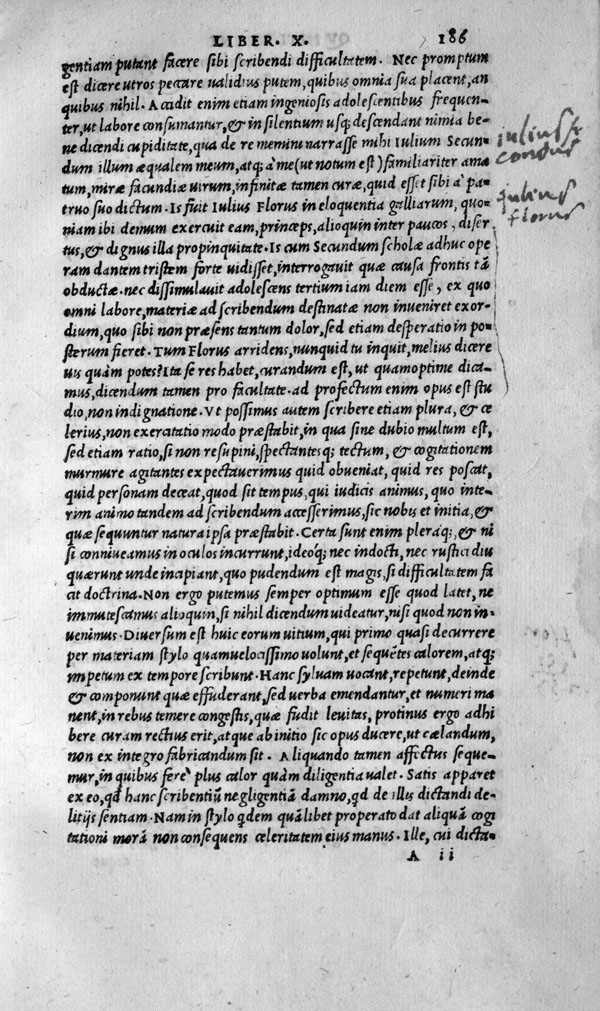 LIBER. X. 186
gentiam putant facere sibi scribendi difficultatem. Nec promptum
est dicere utros peccare ualidius putem, quibus omnia sua placent, an
quibus nihil. Accidit enim etiam ingeniosis adolescentibus frequen-
ter, ut labore consumantur, & in silentium usq; descendant nimia be-
ne dicendi cupiditate, qua de re memini narrasse mihi Iulium Secun-
dum illum æqualem meum, atq; à me (ut notum est) familiariter ama
tum, miræ facundiæ uirum, infinitæ tamen curæ, quid esset sibi à pa-
truo suo dictum. Is fuit Iulius Florus in eloquentia galliarum, quo-
niam ibi demum exercuit eam, princeps, alioquin inter paucos, diser
tus, & dignus illa propinquitate. Is cum Secundum scholæ adhuc ope
ram dantem tristem forte uidisset, interrogauit quæ causa frontis tã
obductæ. nec dissimulauit adolescens tertium iam diem esse, ex quo
omni labore, materiæ ad scribendum destinatæ non inueniret exor-
dium, quo sibi non præsens tantum dolor, sed etiam desperatio in po-
sterum fieret. Tum Florus arridens, nunquid tu inquit, melius dicere
uis quàm potes? Ita se res habet, curandum est, ut quamoptime dica-
mus, dicendum tamen pro facultate. ad profectum enim opus est stu
dio, non indignatione. Vt possimus autem scribere etiam plura, & ce
lerius, non exercitatio modo præstabit, in qua sine dubio multum est,
sed etiam ratio, si non resupini, spectantesq; tectum, & cogitationem
murmure agitantes expectauerimus quid obueniat, quid res poscat,
quid personam deceat, quod sit tempus, qui iudicis animus, quo inte-
rim animo tandem ad scribendum accesserimus, sic nobis et initia, &
quæ sequuntur natura ipsa præstabit. Certa sunt enim pleraq;, & ni
si conniueamus in oculos incurrunt, ideoq; nec indocti, nec rustici diu
quærunt unde incipiant, quo pudendum est magis, si difficultatem fa
cit doctrina. Non ergo putemus semper optimum esse quod latet, ne
immutescamus alioquin, si nihil dicendum uideatur, nisi quod non in-
uenimus. Diuersum est huic eorum uitium, qui primo quasi decurrere
per materiam stylo quamuelocissimo uolunt, et sequẽtes calorem, atq;
impetum ex tempore scribunt. Hanc syluam uocant, repetunt, deinde
& componunt quæ effuderant, sed uerba emendantur, et numeri ma
nent, in rebus temere congestis, quæ fudit leuitas, protinus ergo adhi
bere curam rectius erit, atque ab initio sic opus ducere, ut cælandum,
non ex integro fabricandum sit. Aliquando tamen affectus seque-
mur, in quibus ferè plus calor quàm diligentia ualet. Satis apparet
ex eo, qd hanc scribentiũ negligentiã damno, qd de illis dictandi de-
litijs sentiam. Nam in stylo qdem quãlibet properato dat aliquã cogi
tationi morã non consequens celeritatem eius manus. Ille, cui dicta-
A ii
iulius se
condus
iulius
florus